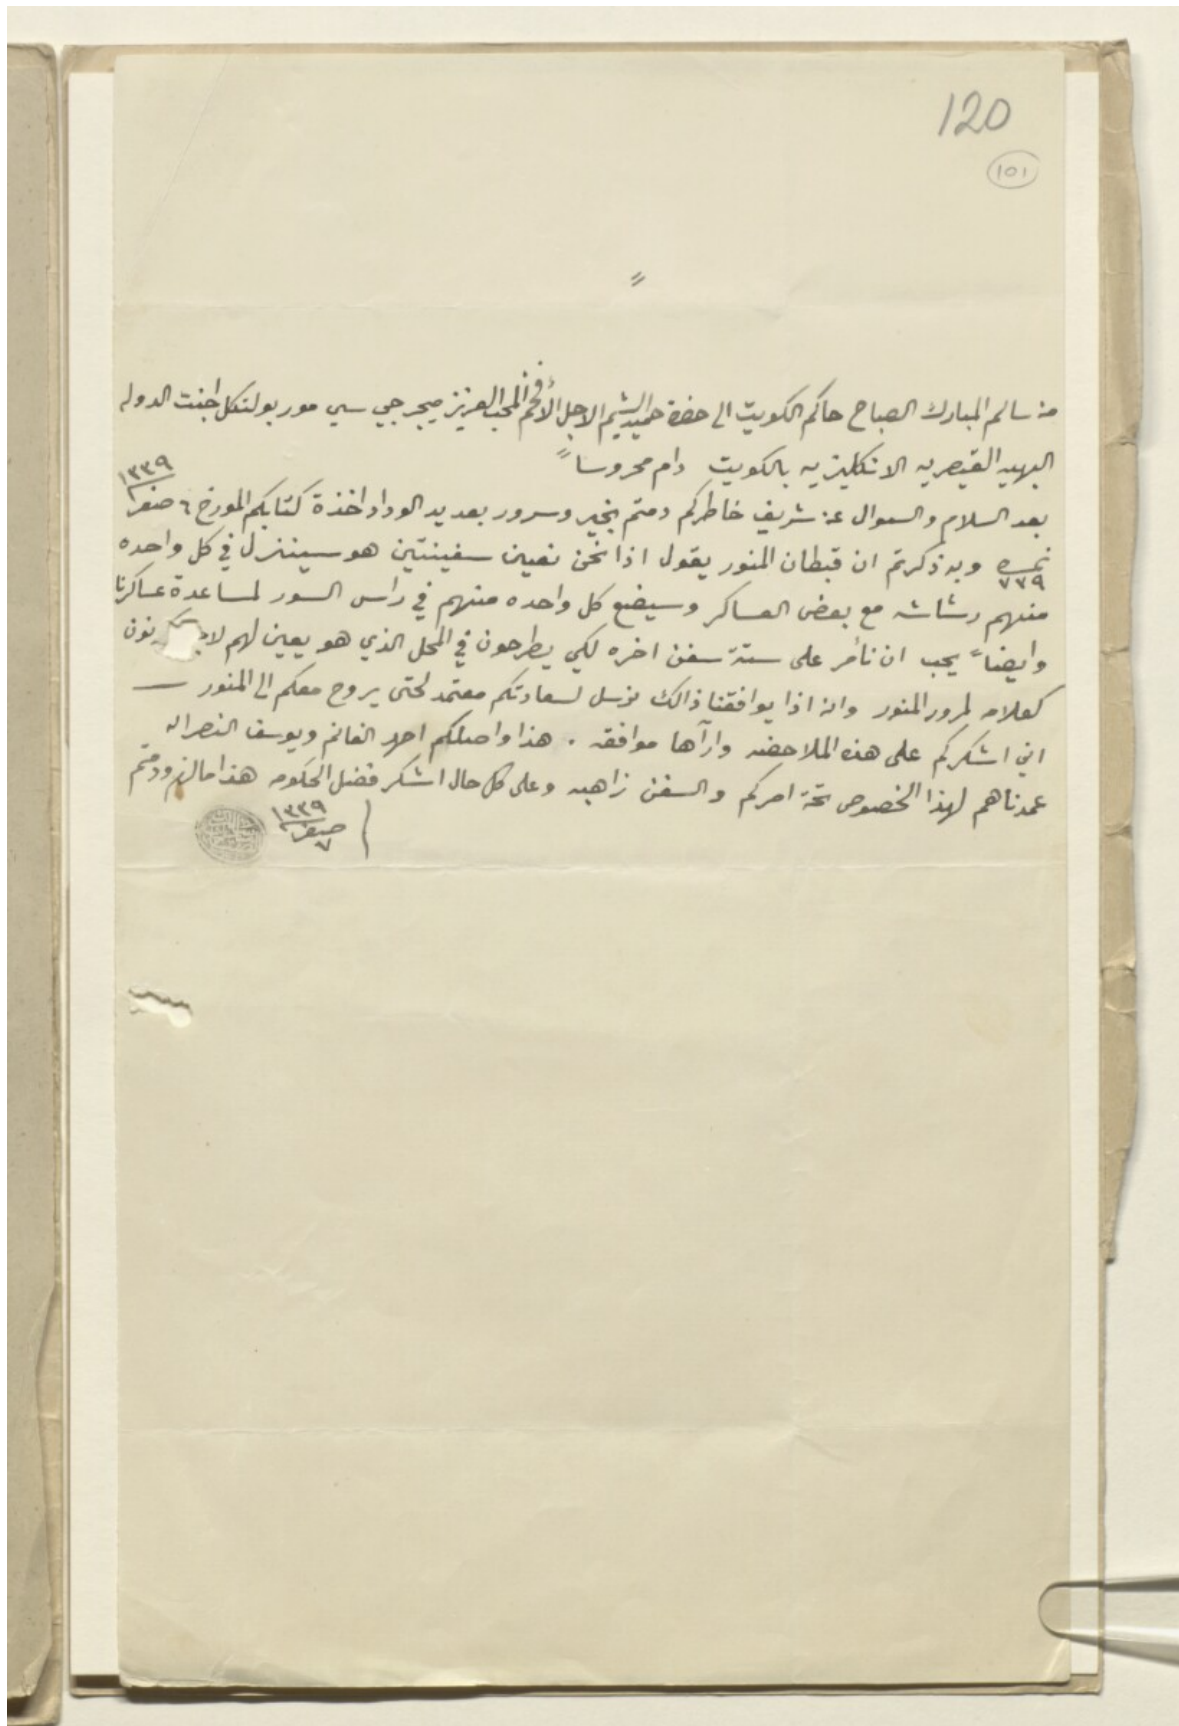 120
101
من سالم المبارك الصباح حاكم الكويت الى حضرة حميد الشيم الاجل الأفخم المحب العزيز ميجر جي سي مور بولتكل اجنت الدوله
البهيه القيصريه الانكليزيه بالكويت دام محروساً
بعد السلام والسوال عن شريف خاطركم دمتم بخير وسرور بعد يد الوداد اخذة كتابكم المورخ ٦ صفر ١٣٣٩
نمره ٧٧٩ وبه ذكرتم ان قبطان المنور يقول اذا نحن نعين سفينتين هو سينزل في كل واحده
منهم رشاشه مع بعض العساكر وسيضع كل واحده منهم في راس السور لمساعدة عساكرنا
وايضاً يجب ان نأمر على ستة سفن اخره لكي يطرحون في المحل الذي هو يعين لهم
كعلامه لمرور المنور وانه اذا يوافقنا ذالك نرسل لسعادتكم معتمد لحتى يروح معكم الى المنور
اني اشكركم على هذه الملاحضه وارآها موافقه . هذا واصلكم احمد الغانم ويوسف النصرالله
عمدناهم لهذا الخصوص تحة امركم والسفن زاهبه وعلى كل حال اشكر فضل الحكومه هذا مالزم ودمتم
٧ صفر ١٣٣٩